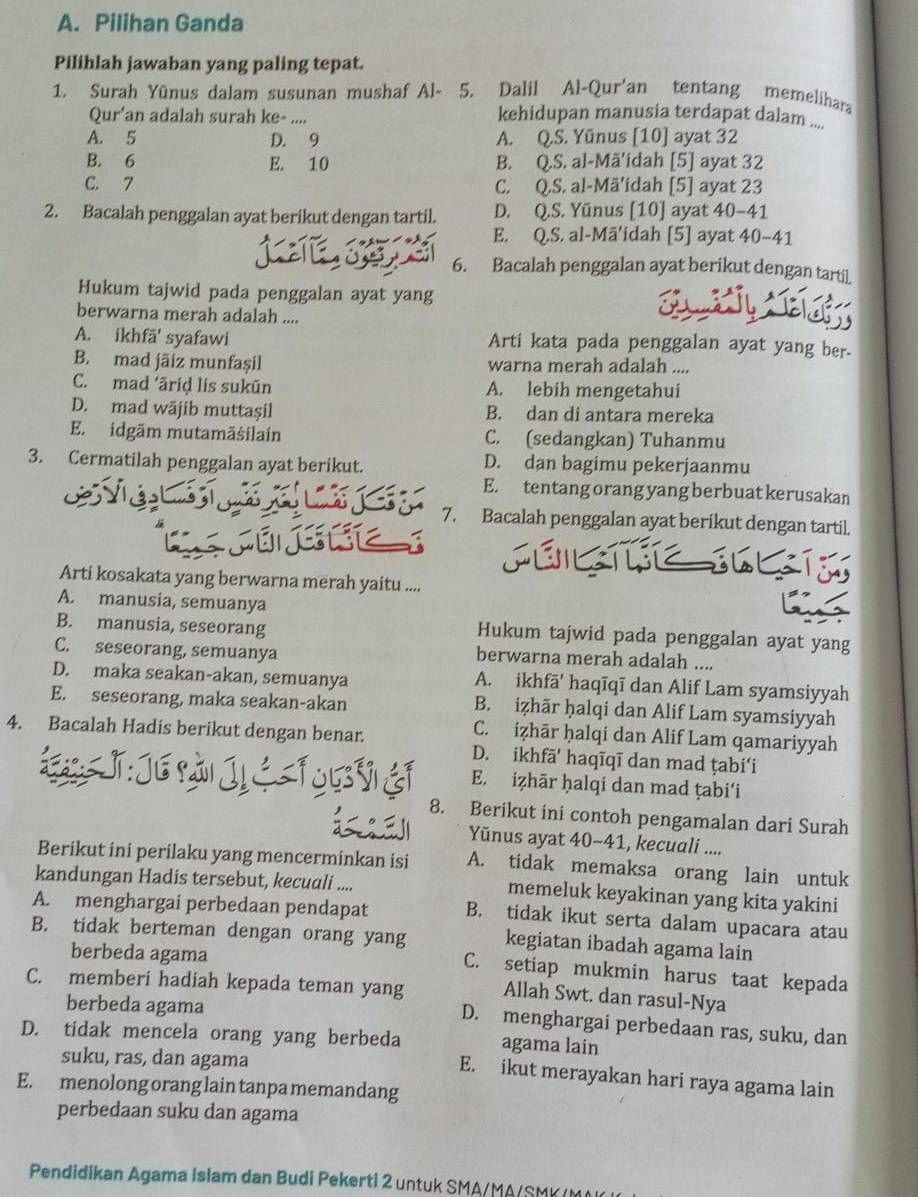 A. Pilihan Ganda
Pilihlah jawaban yang paling tepat.
1. Surah Yūnus dalam susunan mushaf Al-
Qur'an adalah surah ke- ....
A. 5 D. 9
B. 6 E. 10
C. 7
2. Bacalah penggalan ayat berikut dengan tartil.
أَنْتُمْ بَرِيْٓـُٔوْنَ مِمَّآ اَعْمَلُ
Hukum tajwid pada penggalan ayat yang
berwarna merah adalah ....
A. ikhfā' syafawi
B. mad jāiz munfaṣil
C. mad 'āriḍ lis sukūn
D. mad wājib muttaṣil
E. idgām mutamāśilain
3. Cermatilah penggalan ayat berikut.
مَنْ قَتَلَ نَفْسًاۢ بِغَيْرِ نَفْسٍ اَوْ فَسَادٍ فِى الْاَرْضِ
فَكَاَنَّمَا قَتَلَ النَّاسَ جَمِيْعًاۗ
Arti kosakata yang berwarna merah yaitu ....
A. manusia, semuanya
B. manusia, seseorang
C. seseorang, semuanya
D. maka seakan-akan, semuanya
E. seseorang, maka seakan-akan
4. Bacalah Hadis berikut dengan benar.
أَيُّ الْأَدْيَانِ أَحَبُّ إِلَى اللهِ؟ قَالَ: الْحَنِيْفِيَّةُ
السَّمْحَةُ
Berikut ini perilaku yang mencerminkan isi
kandungan Hadis tersebut, kecuali ....
A. menghargai perbedaan pendapat
B. tidak berteman dengan orang yang
berbeda agama
C. memberi hadiah kepada teman yang
berbeda agama
D. tidak mencela orang yang berbeda
suku, ras, dan agama
E. menolong orang lain tanpa memandang
perbedaan suku dan agama
5. Dalil Al-Qur'an tentang memelihara
kehidupan manusia terdapat dalam ....
A. Q.S. Yūnus [10] ayat 32
B. Q.S. al-Mā'idah [5] ayat 32
C. Q.S. al-Mā'idah [5] ayat 23
D. Q.S. Yūnus [10] ayat 40-41
E. Q.S. al-Mā'idah [5] ayat 40-41
6. Bacalah penggalan ayat berikut dengan tartil.
وَرَبُّكَ اَعْلَمُ بِالْمُفْسِدِيْنَ
Arti kata pada penggalan ayat yang ber-
warna merah adalah ....
A. lebih mengetahui
B. dan di antara mereka
C. (sedangkan) Tuhanmu
D. dan bagimu pekerjaanmu
E. tentang orang yang berbuat kerusakan
7. Bacalah penggalan ayat berikut dengan tartil.
وَمَنْ اَحْيَاهَا فَكَاَنَّمَآ اَحْيَا النَّاسَ
جَمِيْعًا
Hukum tajwid pada penggalan ayat yang
berwarna merah adalah ....
A. ikhfā' haqīqī dan Alif Lam syamsiyyah
B. iẓhār ḥalqi dan Alif Lam syamsiyyah
C. iẓhār ḥalqi dan Alif Lam qamariyyah
D. ikhfā' haqīqī dan mad ṭabi'i
E. iẓhār ḥalqi dan mad ṭabi'i
8. Berikut ini contoh pengamalan dari Surah
Yūnus ayat 40-41, kecuali ....
A. tidak memaksa orang lain untuk
memeluk keyakinan yang kita yakini
B. tidak ikut serta dalam upacara atau
kegiatan ibadah agama lain
C. setiap mukmin harus taat kepada
Allah Swt. dan rasul-Nya
D. menghargai perbedaan ras, suku, dan
agama lain
E. ikut merayakan hari raya agama lain
Pendidikan Agama Islam dan Budi Pekerti 2 untuk SMA/MA/SMK/